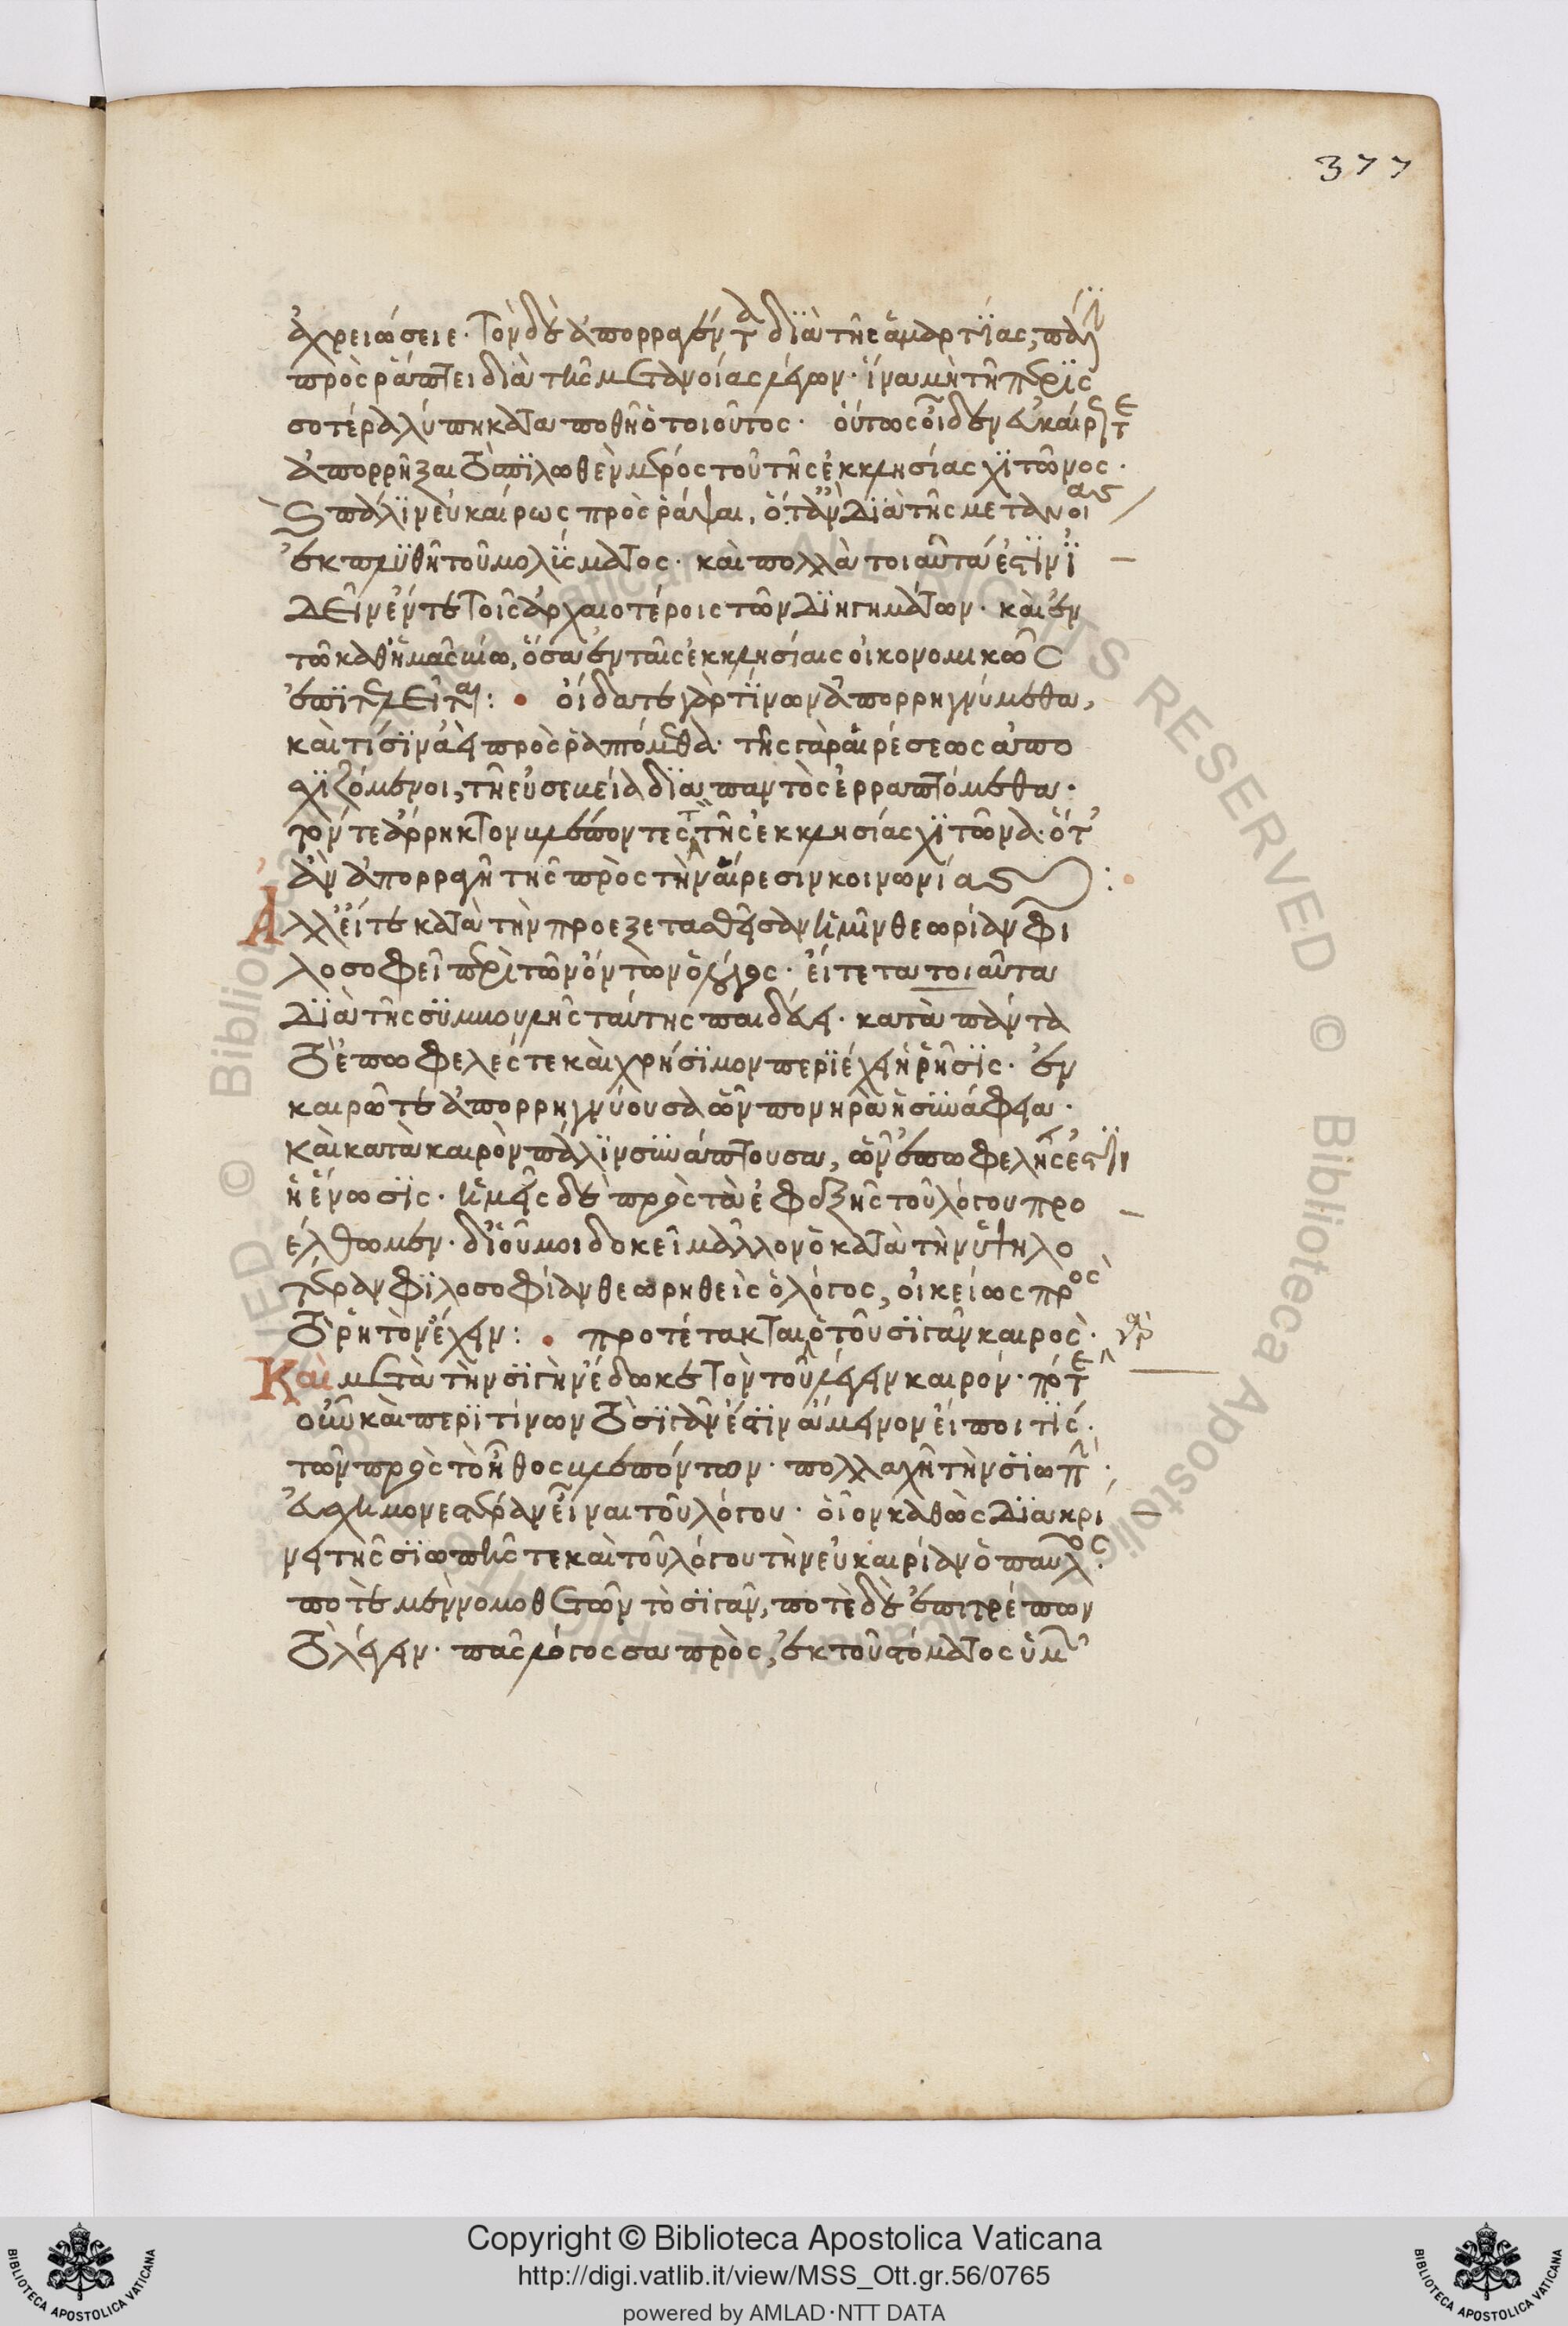 377
ἀχρειώσειε· τὸν δὲ ἀπορραγέντα διὰ τῆς ἁμαρτίας, πάλιν
προσράπτει διὰ τῆς μετανοίας λέγων· ἵνα μὴ τῇ περισ
σοτέρα λύπη καταποθῇ ὁ τοιοῦτος· οὕτως οἶδεν ἀκαίρ τε
ἀπορρῆξαι τὸ σπιλωθὲν μέρος τοῦ τῆς ἐκκλησίας χιτῶνος·
καὶ πάλιν εὐκαίρως προσράψαι, ὅταν διὰ τῆς μετανοίας
ἐκπλυθῇ τοῦ μολίσματος· καὶ πολλὰ τοιαῦτά ἐστιν ἰ
δεῖν ἔν τε τοῖς ἀρχαιοτέροις τῶν διηγημάτων· καὶ ἐν
τῶ καθ ἡμᾶς βίω, ὅσα ἐν ταῖς ἐκκλησίαις οἰκονομικῶς
ἐπιτελεῖται: οἴδατε γὰρ τίνων ἀπορρηγνύμεθα,
καὶ τίσιν ἀεὶ προσραπτόμεθα· τῆς γὰρ αἱρέσεως ἀπο
σχιζόμενοι, τῇ εὐσεβεία διαπαντὸς ἐρραπτόμεθα·
τόν τε ἄρρηκτον βλέποντες τῆς ἐκκλησίας χιτῶνα· ὅτ
ἂν ἀπορραγῇ τῆς πρὸς τὴν αἵρεσιν κοινωνίας:
Ἀλλ εἴτε κατὰ τὴν προεξετασθεῖσαν ἡμῖν θεωρίαν φι
λοσοφεῖ περὶ τῶν ὄντων ὁ λόγος· εἴτε τα τοιαῦτα
διὰ τῆς συμβουλῆς ταύτης παιδεύει· κατὰ πάντα
τὸ ἐπωφελές τε καὶ χρήσιμον περιέχει ἡ ῥῆσις· ἐν
καιρῶ τε ἀπορρηγνύουσα ὧν πονηρὰ ἡ συνάφεια·
καὶ κατὰ καιρὸν πάλιν συνάπτουσα, ὧν ἐπωφελής ἐστιν
ἡ ἕνωσις· ἡμεῖς δὲ πρὸς τὰ ἐφεξῆς τοῦ λόγου προ
έλθωμεν· δι οὗ μοι δοκεῖ μᾶλλον ὁ κατὰ τὴν ὑψηλο
τέραν φιλοσοφίαν θεωρηθεὶς ὁ λόγος, οἰκείως πρὸς
τὸ ῥητὸν ἔχειν: προτέτακται ὁ τοῦ σιγᾶν καιρός· γὰρ
Καὶ μετὰ τὴν σιγὴν ἔδωκε τὸν τοῦ λέγειν καιρόν· πότε
οὖν καὶ περὶ τίνων τὸ σιγᾶν ἐστιν ἄμεινον εἴποι τίς·
τῶν πρὸς τὸ ἦθος βλεπόντων· πολλαχῇ τὴν σιωπὴν
εὐσχημονεστέραν εἶναι τοῦ λόγου· οἷον καθὼς διακρί
νει τῆς σιωπῆς τε καὶ τοῦ λόγου τὴν εὐκαιρίαν ὁ παῦλος·
ποτὲ μὲν νομοθετῶν τὸ σιγᾶν, ποτὲ δὲ ἐπιτρέπων
τὸ λέγειν· πᾶς λόγος σαπρὸς, ἐκ τοῦ στόματος ὑμ
Copyright © Biblioteca Apostolica Vaticana
http://digi.vatlib.it/view/MSS_Ott.gr.56/0765
powered by AMLAD·NTT DATA